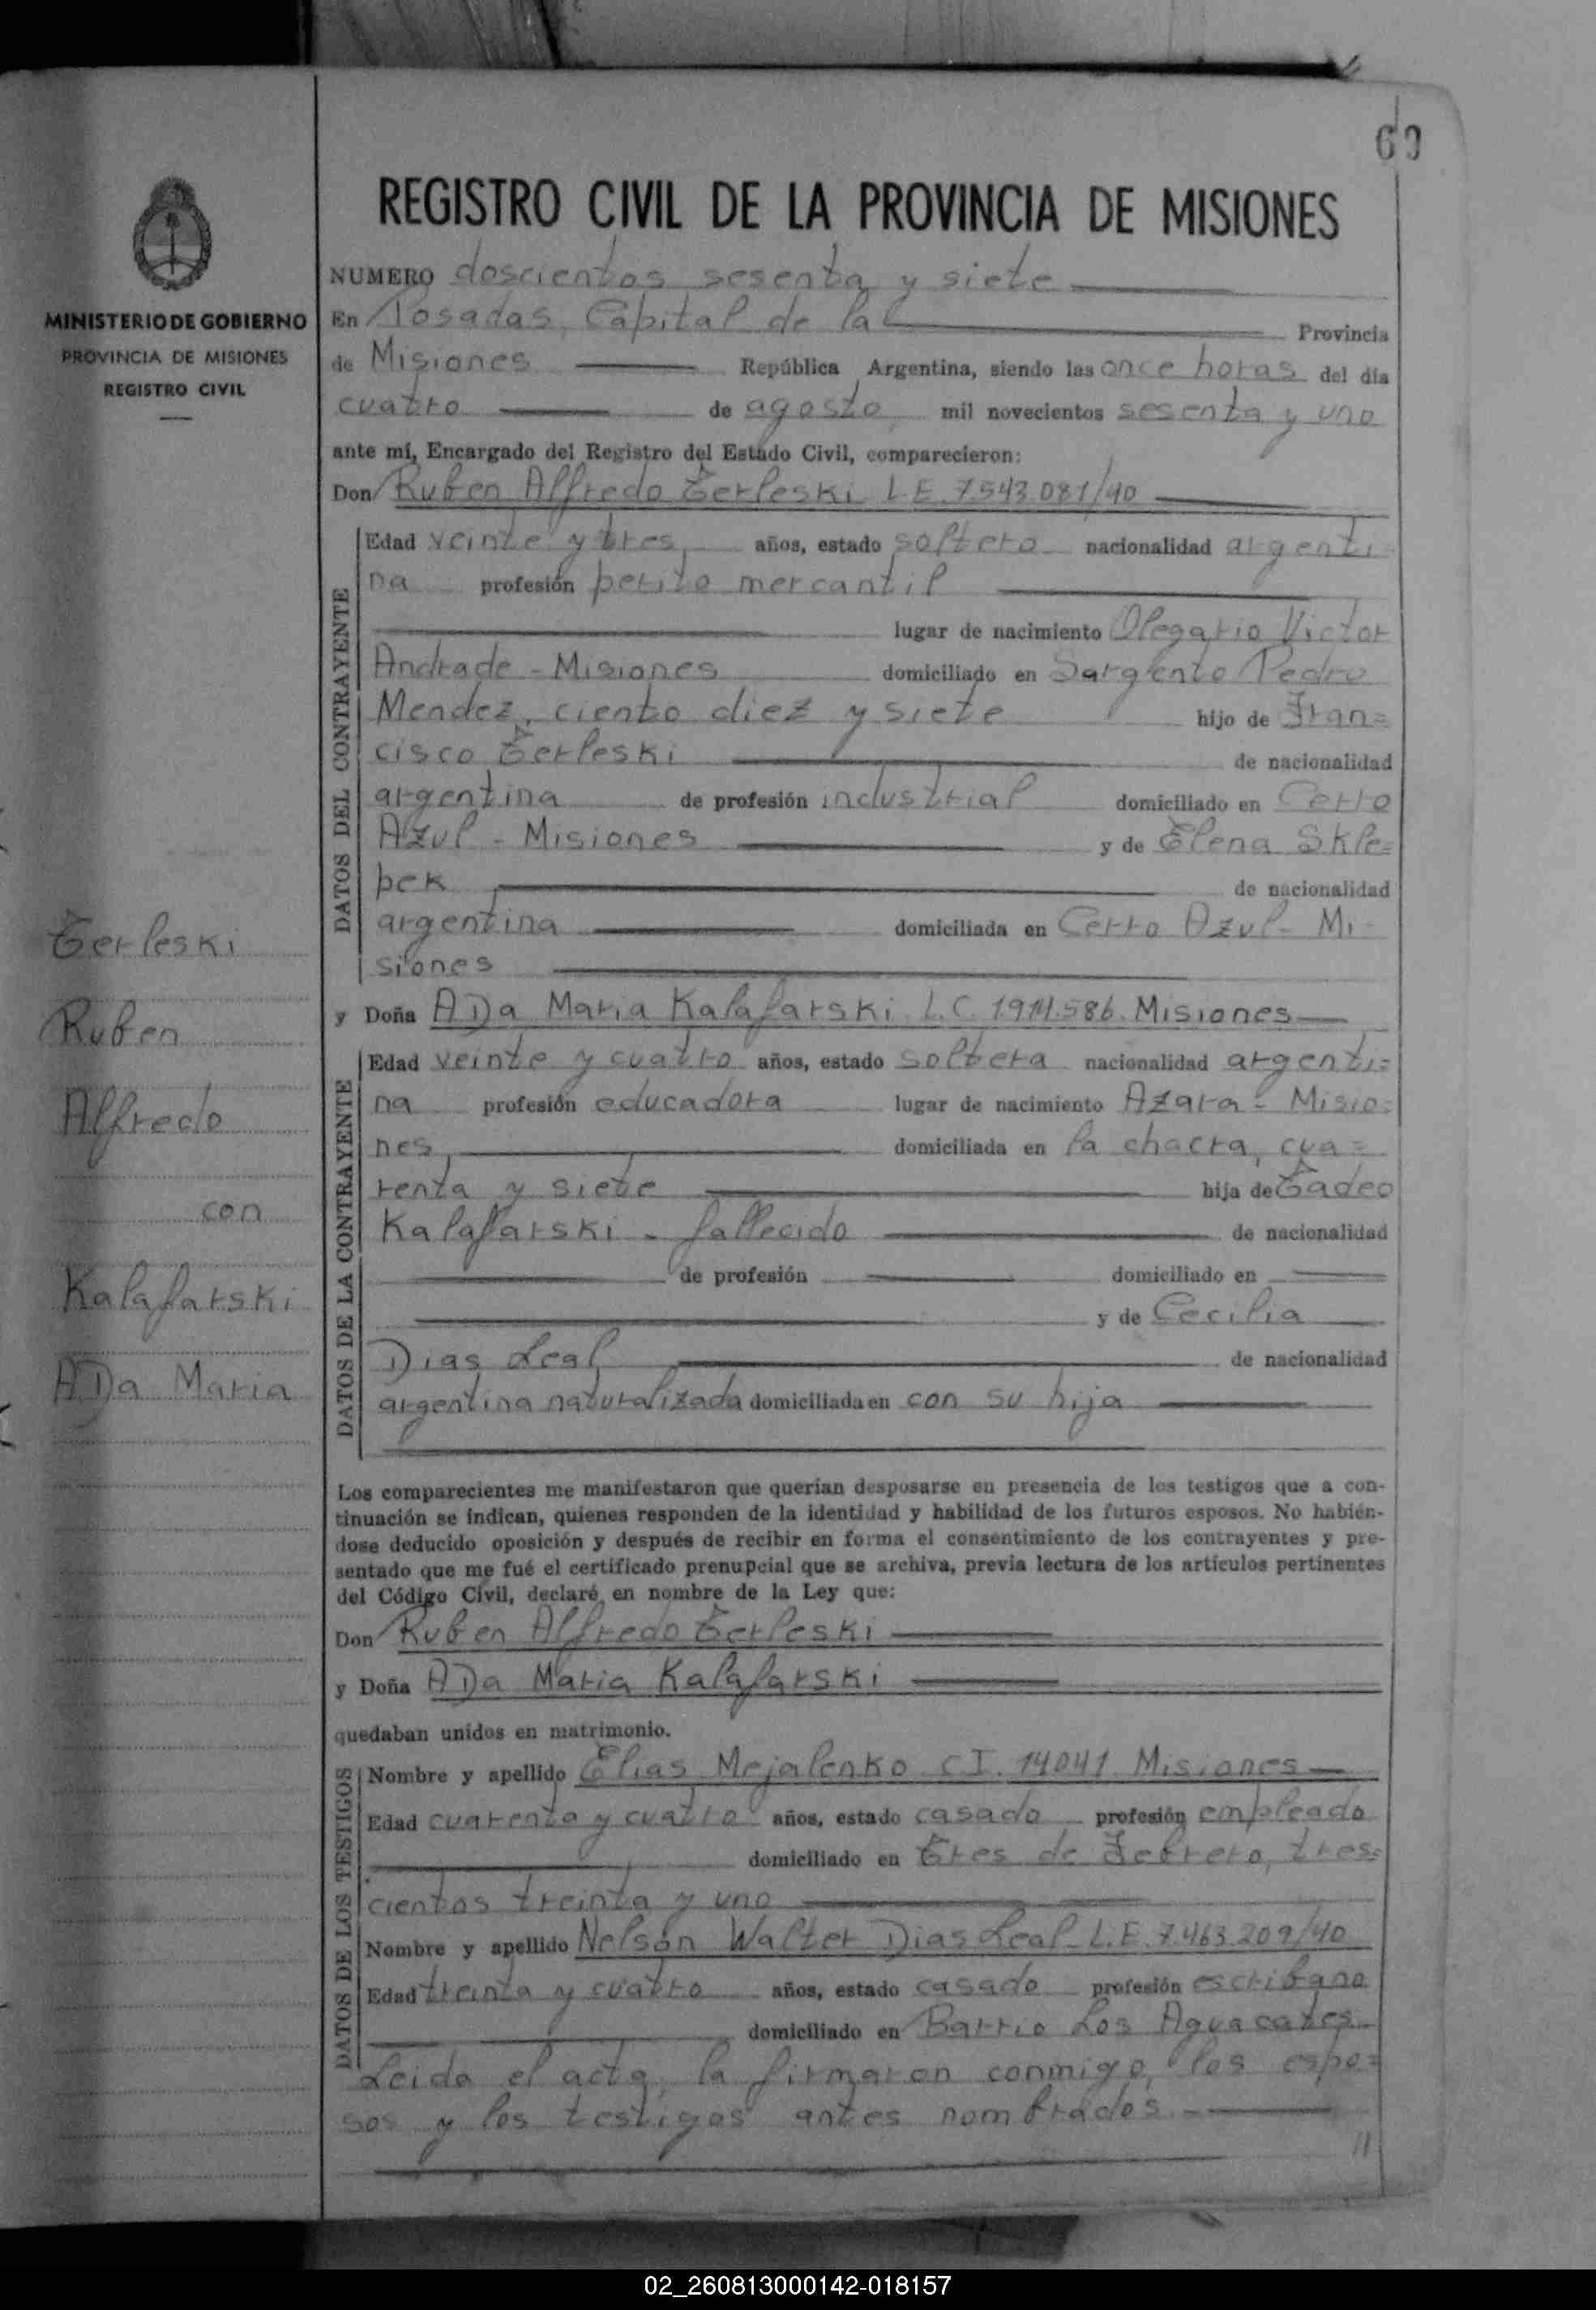 60
REGISTRO CIVIL DE LA PROVINCIA DE MISIONES
MINISTERIO DE GOBIERNO
PROVINCIA DE MISIONES
REGISTRO CIVIL
NUMERO doscientos sesenta y siete
En Posadas, Capital de la Provincia
de Misiones República Argentina, siendo las once horas del día
cuatro de agosto mil novecientos sesenta y uno
ante mí, Encargado del Registro del Estado Civil, comparecieron:
Don Ruben Alfredo Terleski L.E. 7.543.081/40
DATOS DEL CONTRAYENTE
Edad veinte y tres años, estado soltero nacionalidad argenti-
na profesión perito mercantil
lugar de nacimiento Olegario Victor
Andrade - Misiones domiciliado en Sargento Pedro
Mendez, ciento diez y siete hijo de Fran=
cisco Terleski de nacionalidad
argentina de profesión industrial domiciliado en Cerro
Azul - Misiones y de Elena Skle=
pek de nacionalidad
argentina domiciliada en Cerro Azul - Mi-
siones
y Doña ADa Maria Kalafarski L.C. 1.914.586. Misiones
DATOS DE LA CONTRAYENTE
Edad veinte y cuatro años, estado soltera nacionalidad argenti=
na profesión educadora lugar de nacimiento Azara - Misio=
nes, domiciliada en la chacra, cua=
renta y siete hija de Tadeo
Kalafarski - fallecido de nacionalidad
de profesión domiciliado en
y de Cecilia
Dias Leal de nacionalidad
argentina naturalizada domiciliada en con su hija
Los comparecientes me manifestaron que querían desposarse en presencia de los testigos que a con-
tinuación se indican, quienes responden de la identidad y habilidad de los futuros esposos. No habién-
dose deducido oposición y después de recibir en forma el consentimiento de los contrayentes y pre-
sentado que me fué el certificado prenupcial que se archiva, previa lectura de los artículos pertinentes
del Código Civil, declaré, en nombre de la Ley que:
Don Ruben Alfredo Terleski
y Doña ADa Maria Kalafarski
quedaban unidos en matrimonio.
DATOS DE LOS TESTIGOS
Nombre y apellido Elias Mejalenko C.I. 14041 Misiones
Edad cuarenta y cuatro años, estado casado profesión empleado
domiciliado en Tres de Febrero, tres=
cientos treinta y uno
Nombre y apellido Nelson Walter Dias Leal - L.E. 7.463.209/40
Edad treinta y cuatro años, estado casado profesión escribano
domiciliado en Barrio Los Aguacates
Leida el acta, la firmaron conmigo, los espo=
sos y los testigos antes nombrados. -
//
Terleski
Ruben
Alfredo
con
Kalafarski
ADa Maria
02_260813000142-018157